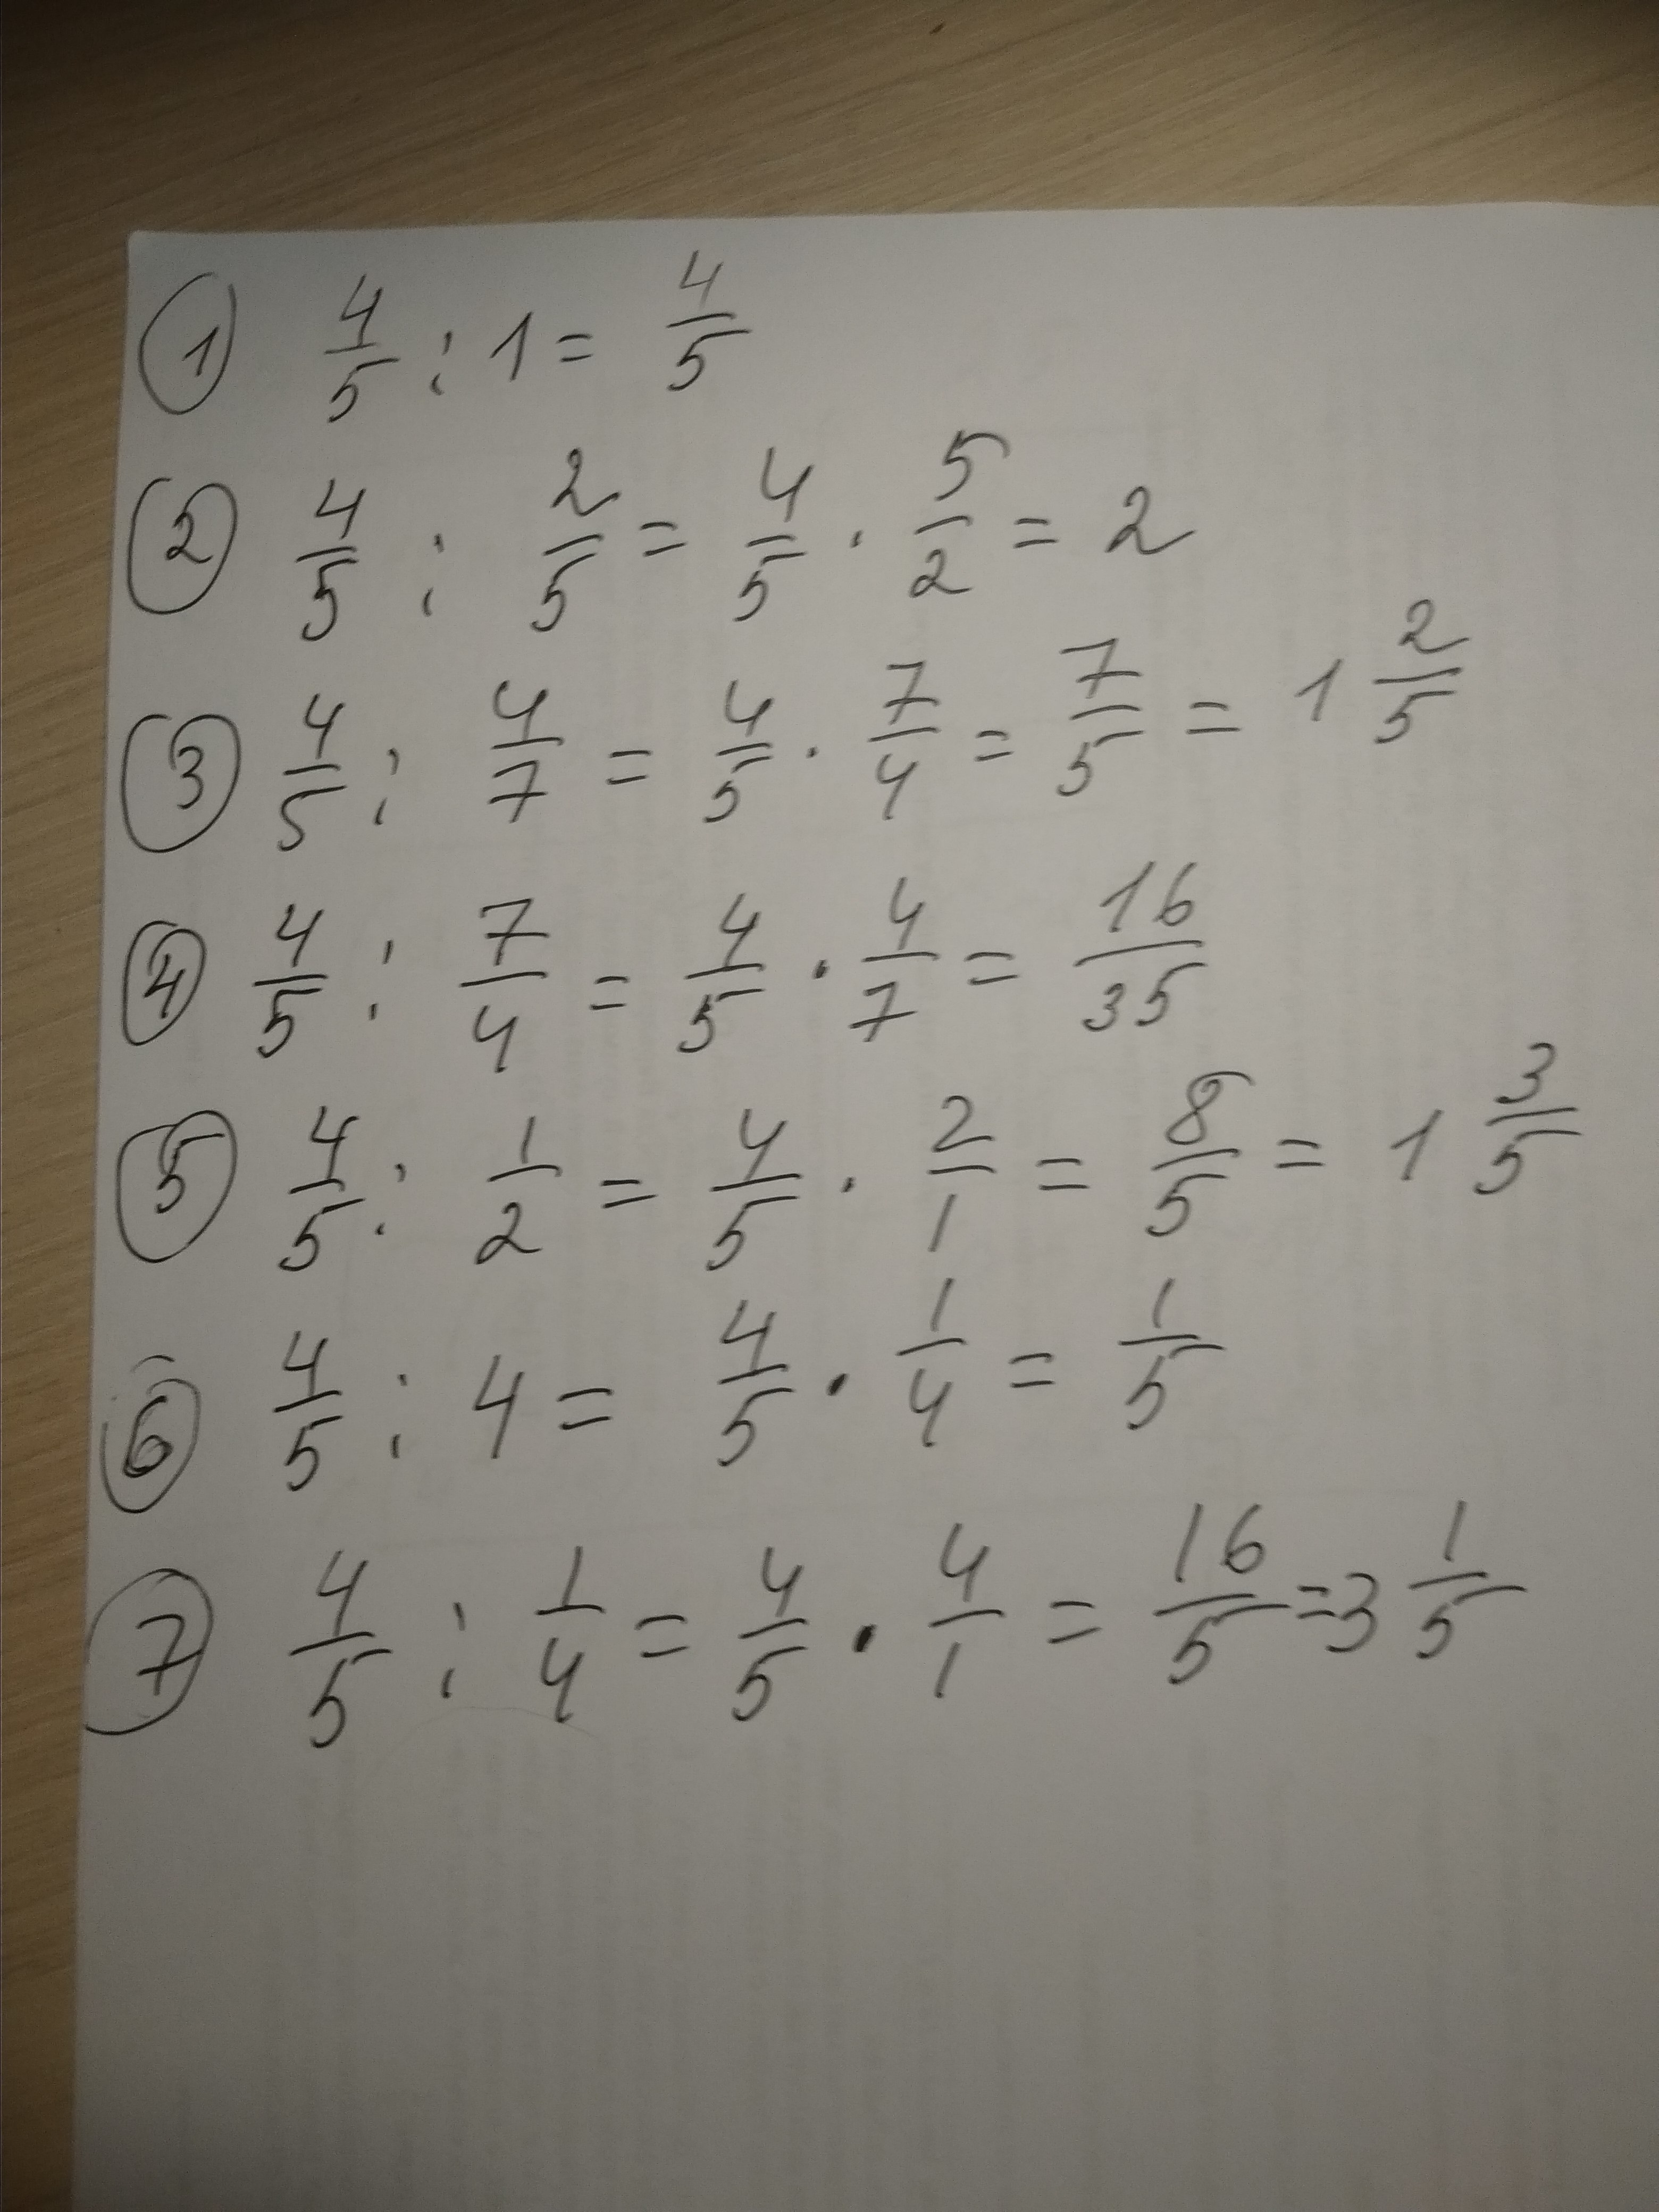 ① 4/5 : 1 = 4/5
② 4/5 : 2/5 = 4/5 · 5/2 = 2
③ 4/5 : 4/7 = 4/5 · 7/4 = 7/5 = 1 2/5
④ 4/5 : 7/4 = 4/5 · 4/7 = 16/35
⑤ 4/5 : 1/2 = 4/5 · 2/1 = 8/5 = 1 3/5
⑥ 4/5 : 4 = 4/5 · 1/4 = 1/5
⑦ 4/5 : 1/4 = 4/5 · 4/1 = 16/5 = 3 1/5